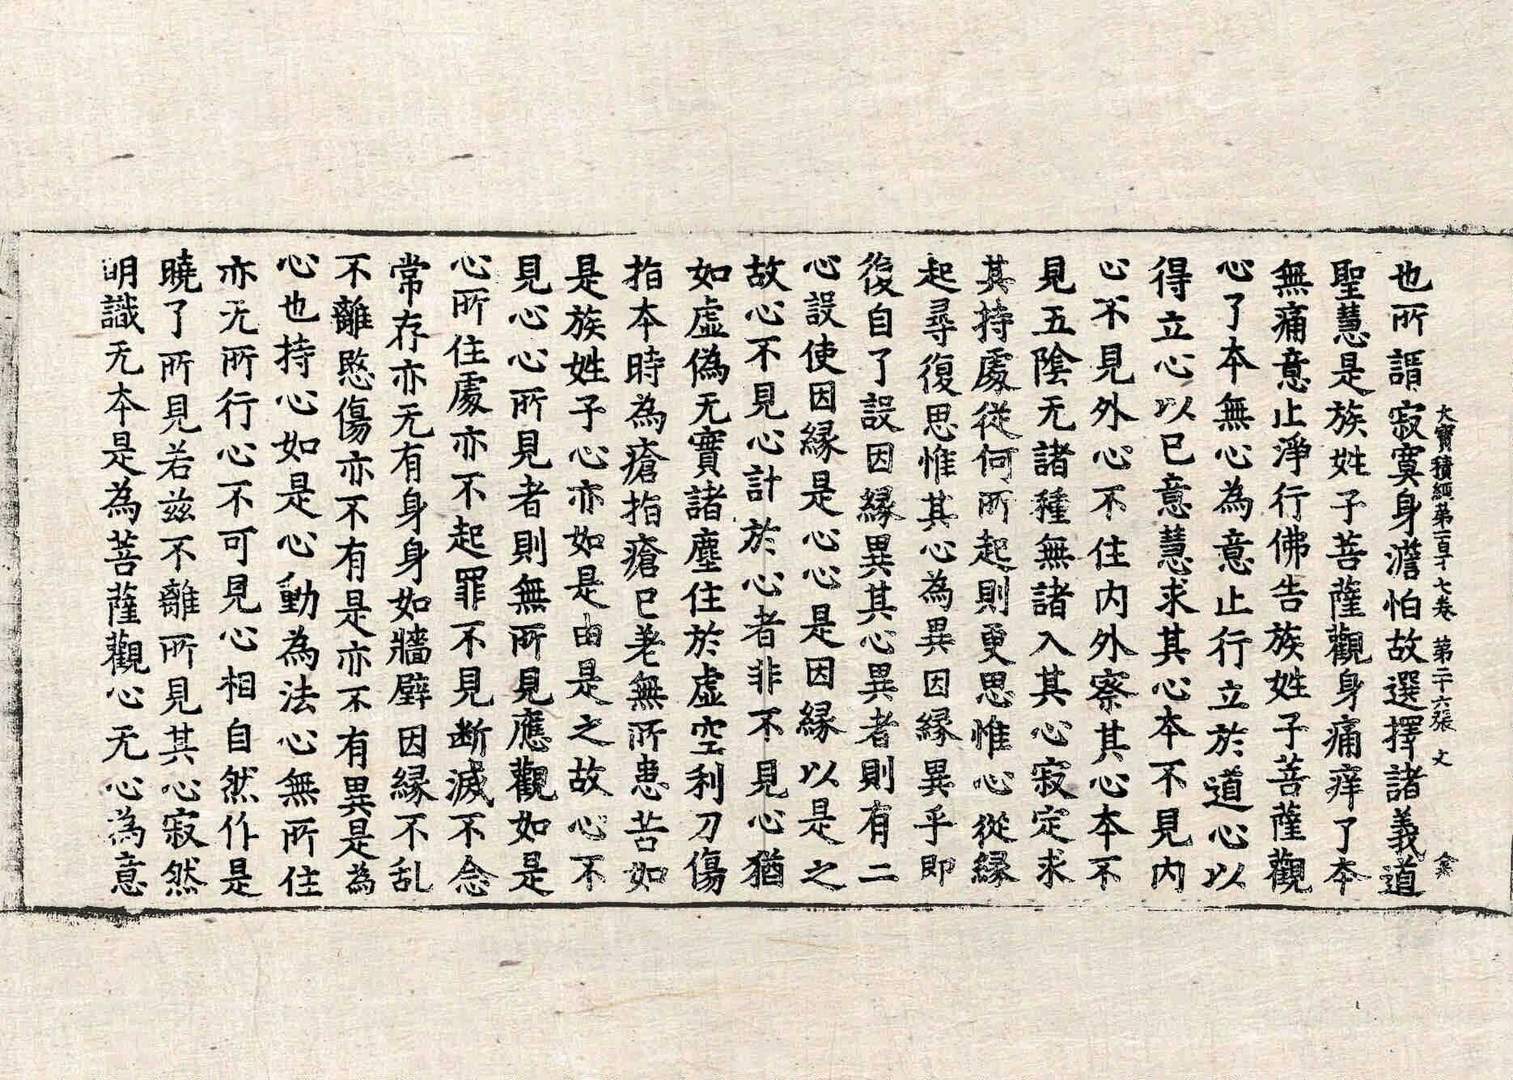 大寶積經第一百十七卷 第二十六張 文
也所謂寂寞身澹怕故選擇諸義道
聖慧是族姓子菩薩觀身痛痒了本
無痛意止淨行佛告族姓子菩薩觀
心了本無心為意止行立於道心以
得立心以已意慧求其心本不見內
心不見外心不住內外察其心本不
見五陰无諸種無諸入其心寂定求
其持處從何所起則更思惟心從緣
起尋復思惟其心為異因緣異乎即
後自了設因緣異其心異者則有二
心設使因緣是心心是因緣以是之
故心不見心計於心者非不見心猶
如虛偽无實諸塵住於虛空利刀傷
指本時為瘡指瘡已差無所患苦如
是族姓子心亦如是由是之故心不
見心心所見者則無所見應觀如是
心所住處亦不起罪不見斷滅不念
常存亦无有身身如牆壁因緣不乱
不離愍傷亦不有是亦不有異是為
心也持心如是心動為法心無所住
亦无所行心不可見心相自然作是
曉了所見若兹不離所見其心寂然
明識无本是為菩薩觀心无心為意